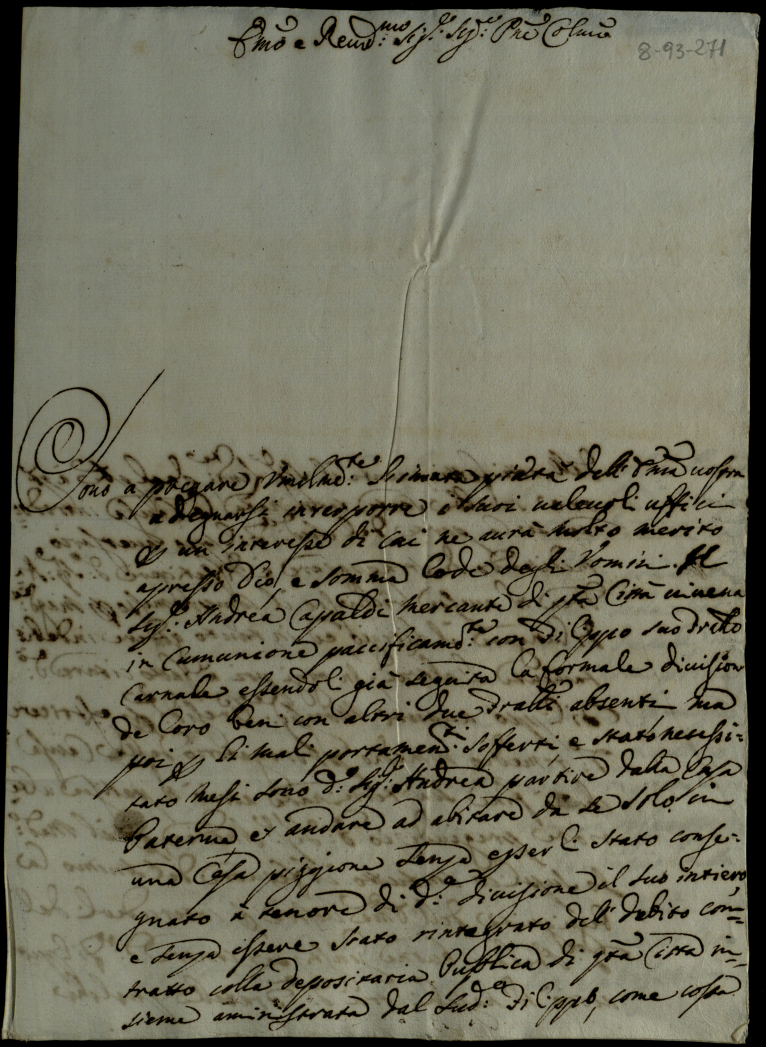 Emõ e Reud.mo Sig.r Sig.r Pñe Colmõ
8-93-271
Sono a pregare umilm.te la innata pietà dell'Emza vostra
a degnarsi interporre i suoi valevoli ufficii
un interesse di cui ne avrà molto merito
appresso Dio, e somma lode degli Uomini. Il
Sig.r Andrea Capaldi mercante di q̃ta Città viveva
in Comunione pacificam.te con suo Frẽllo
Carnale essendoli già seguita la formale division
de loro beni con altri due Fratẽlli absenti, ma
poi li mali portamen.ti sofferti è stato necessi=
tato mesi sono d.o Sig.r Andrea partire dalla Casa
Paterna et andare ad abitare da se solo in
una Casa piggione senza esserli stato conse=
gnato a tenore di d.a divisione il suo intiero,
e senza essere stato rintegrato del debito con=
tratto colla depositaria Pubblica di q̃ta Città in=
sieme amministrata dal sud.o come costa